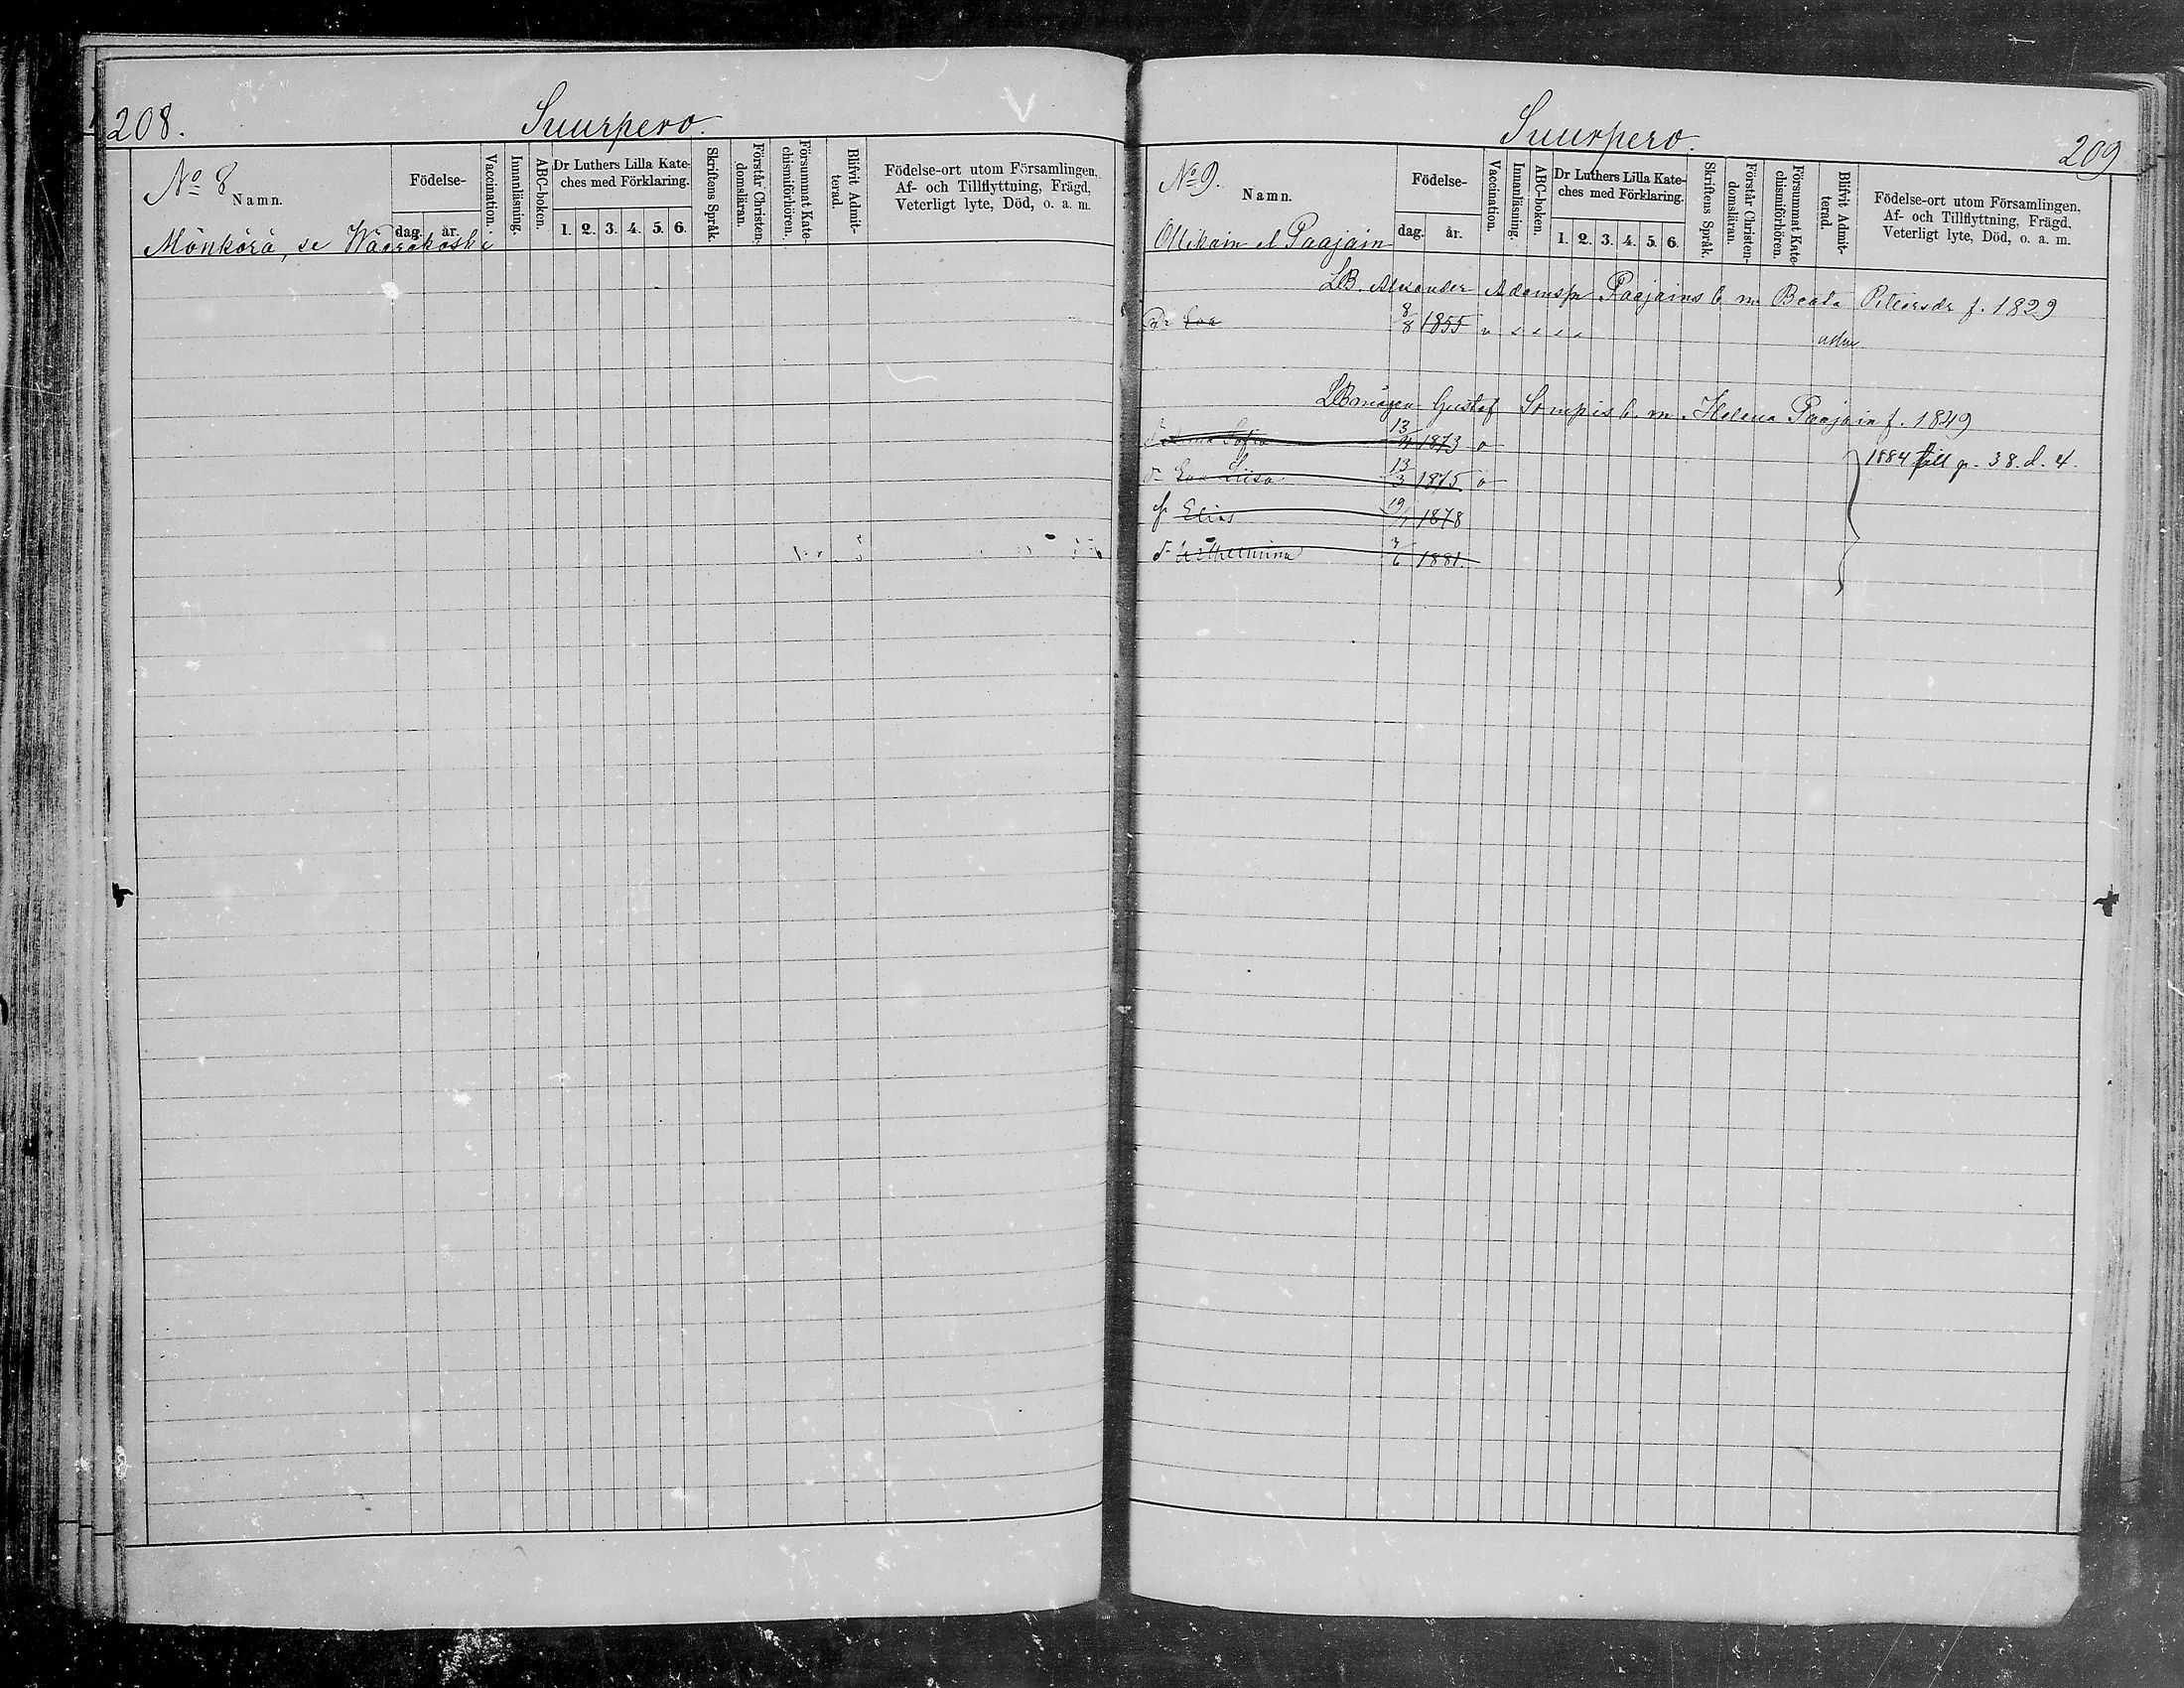 208.
Suurpero.
No 8
Namn.
Födelse-
dag.
år.
Vaccination.
Innanläsning.
ABC-boken.
Dr Luthers Lilla Kate-
ches med Förklaring.
1. 2. 3. 4. 5. 6.
Skriftens Språk.
Förstår Christen-
domsläran.
Försummat Kate-
chismiförhören.
Blifvit Admit-
terad.
Födelse-ort utom Församlingen,
Af- och Tillflyttning, Frägd,
Veterligt lyte, Död, o. a. m.
Mönkörä, se Wääräkoski
Suurpero.
209
No 9.
Namn.
Födelse-
dag.
år.
Vaccination.
Innanläsning.
ABC-boken.
Dr Luthers Lilla Kate-
ches med Förklaring.
1. 2. 3. 4. 5. 6.
Skriftens Språk.
Förstår Christen-
domsläran.
Försummat Kate-
chismiförhören.
Blifvit Admit-
terad.
Födelse-ort utom Församlingen,
Af- och Tillflyttning, Frägd,
Veterligt lyte, Död, o. a. m.
Ollikain el Paajain
LB. Alexander Adamsn Paajains b. m. Beata Pettersdr f. 1829
dr Eva 8/8 1855 v adm
LBmågen Gustaf Sompis b. m. Helena Paajain f. 1849
Sofia 13 1873 v
dr Eva Liisa 13/3 1875 v
1884 till p. 38. d. 4.
Elias 19/1 1878
dr Wilhelmina 3/6 1881.